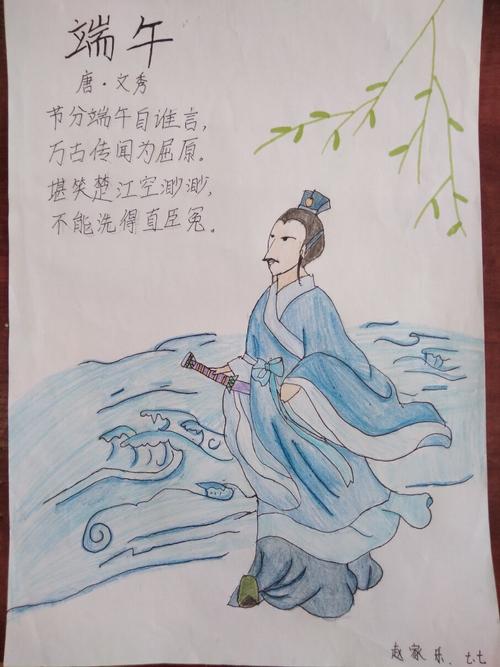 端午
唐·文秀
节分端午自谁言,
万古传闻为屈原。
堪笑楚江空渺渺,
不能洗得直臣冤。
赵家乐. t.t.